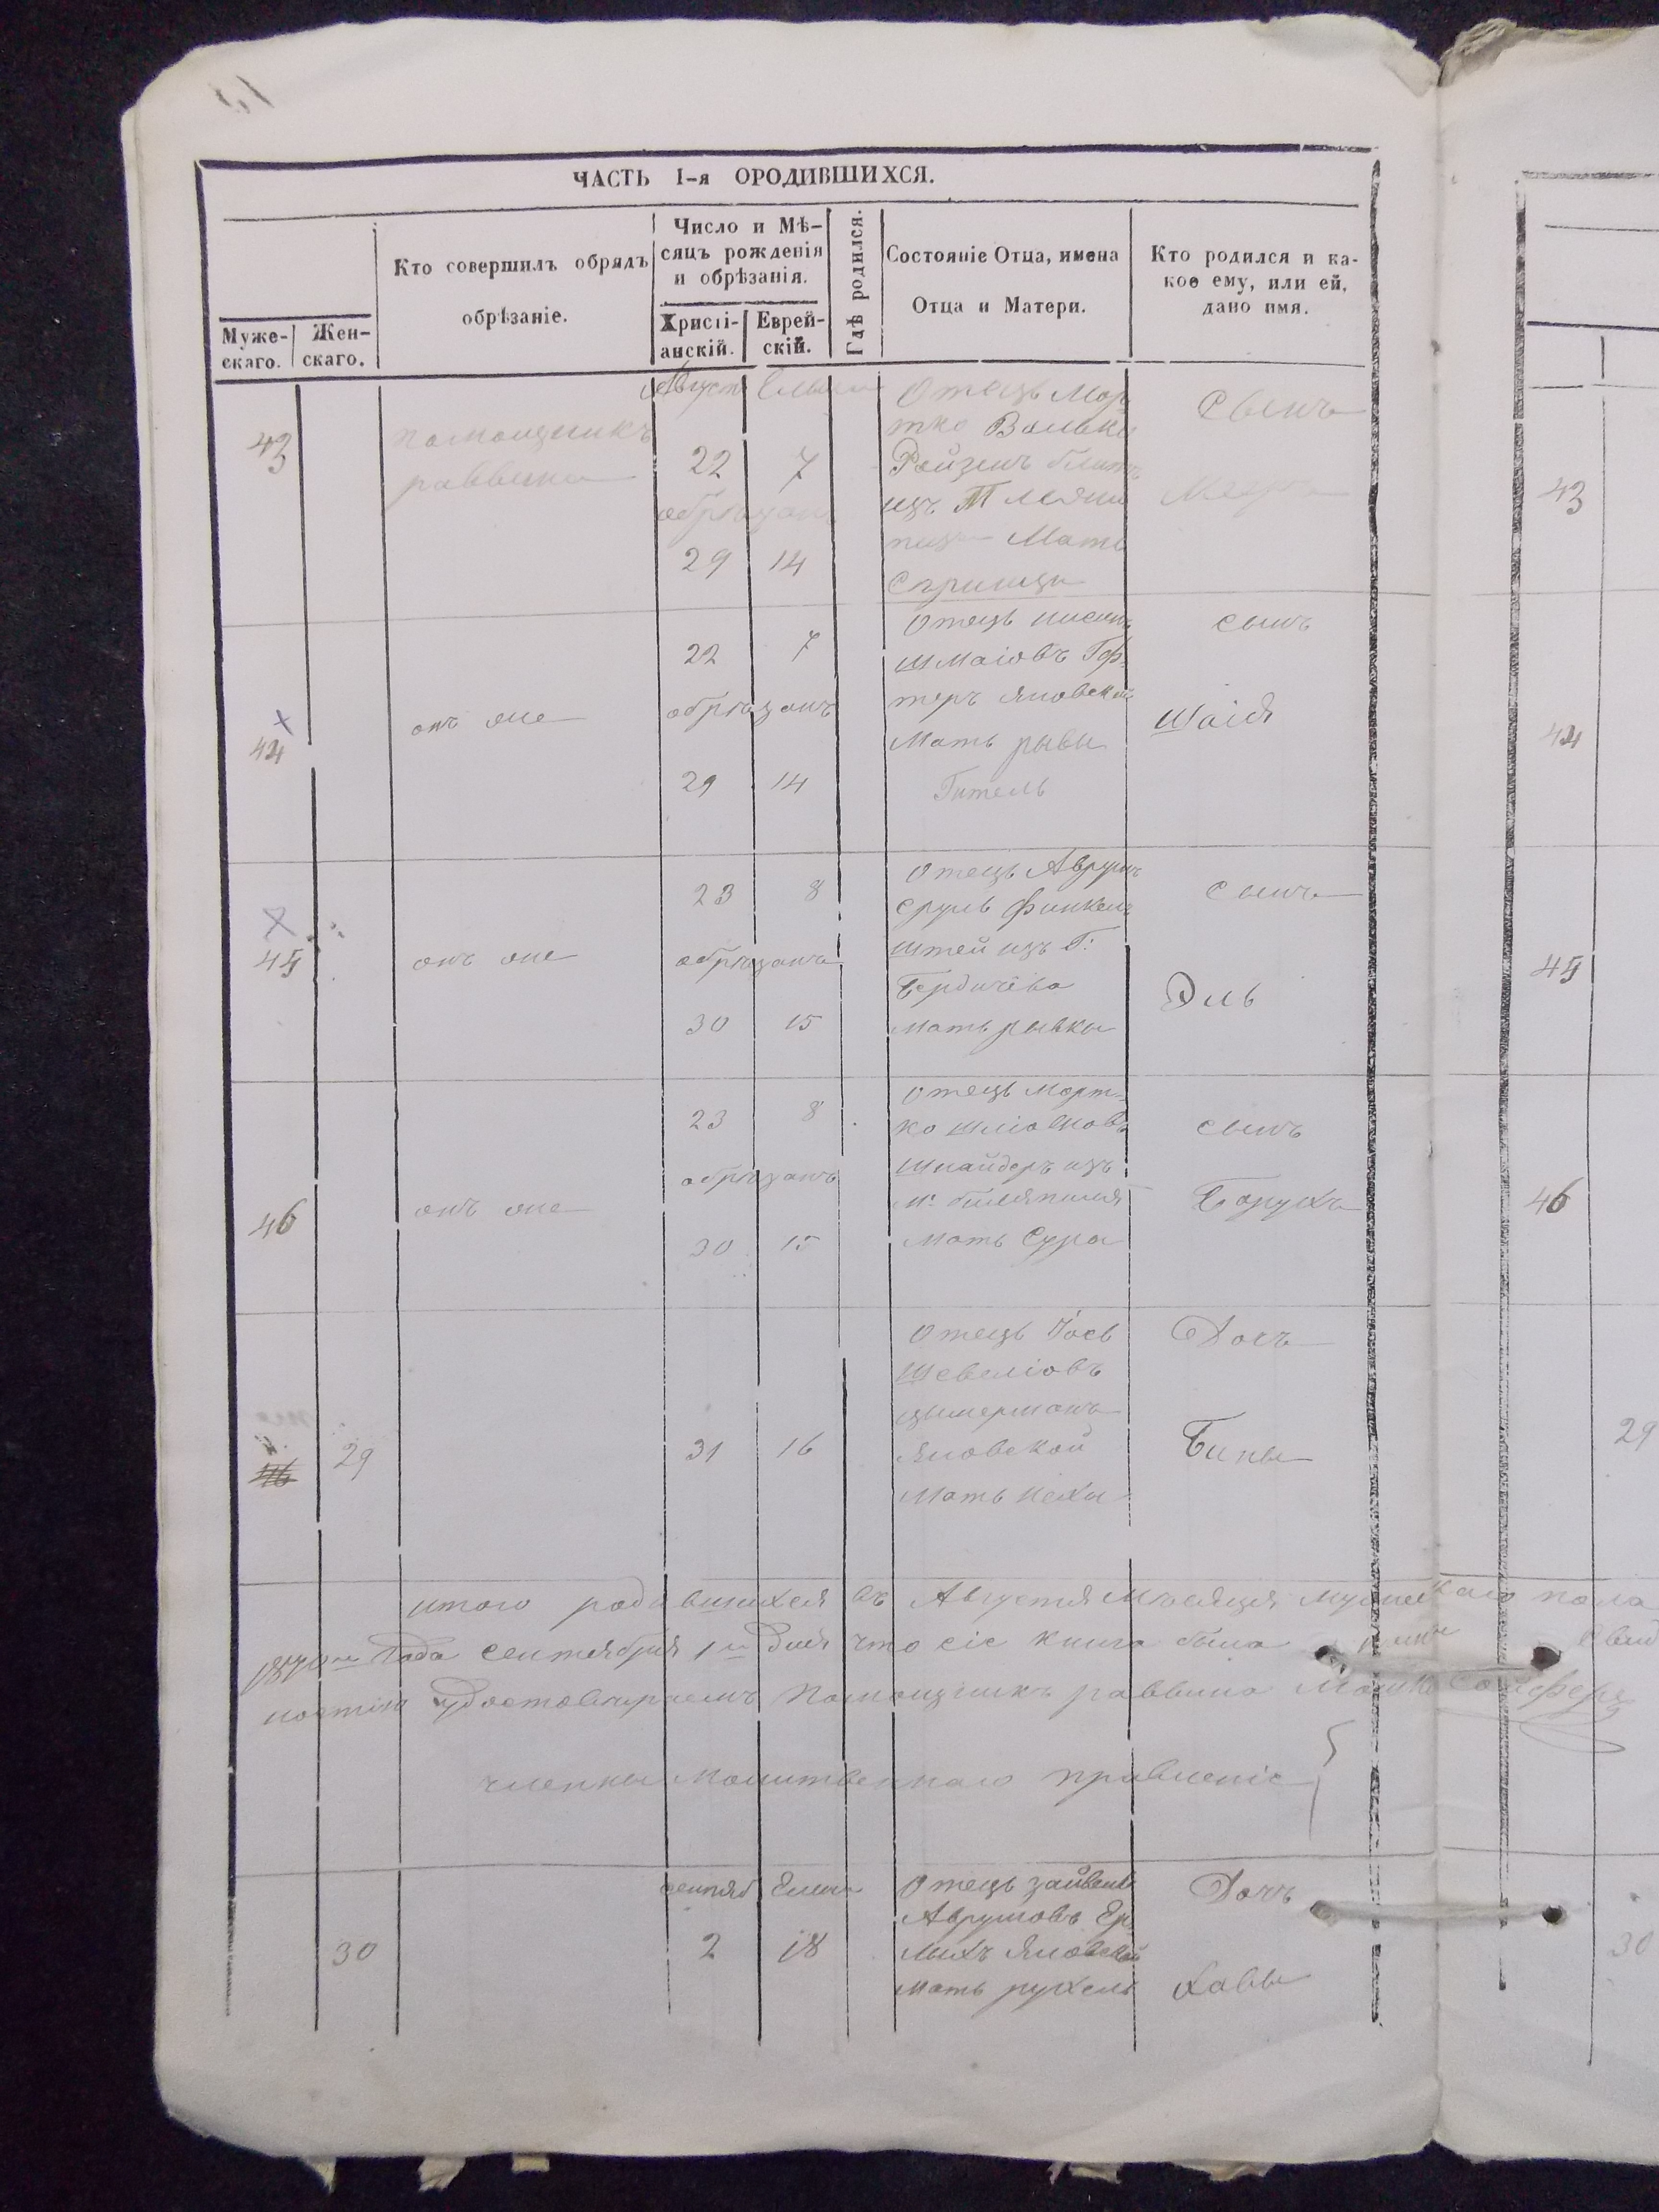 ЧАСТЬ I-я ОРОДИВШИХСЯ.
Муже-
скаго.
Жен-
скаго.
Кто совершилъ обрядъ
обрѣзаніе.
Число и Мѣ-
сяцъ рожденія
и обрѣзанія.
Христі-
анскій.
Еврей-
скій.
Гдѣ родился.
Состояніе Отца, имена
Отца и Матери.
Кто родился и ка-
кое ему, или ей,
дано имя.
43
помощникъ
раввина
Август
22 7
обрѣзанъ
29 14
Отецъ Мор
тко Вольки
Рейзенъ
изъ
Мать
Сприица
Сынъ
43
44
онъ же
22 7
обрѣзанъ
29 14
Отецъ
Шмаіовъ Гоф
теръ Яновской
Мать рывы
Гитель
сынъ
Шаія
44
45
онъ же
23 8
обрѣзанъ
30 15
Отецъ Аврумъ
Сруль Финкель
штей изъ Г:
Бердичева
мать рывка
Сынъ
Эль
45
46
онъ же
23 8
обрѣзанъ
30 15
Отецъ Морт-
ко Шліомовъ
Шнайдеръ изъ
М:
Мать Сура
сынъ
Борухъ
46
29
31 16
Отецъ Іось
Шевеліовъ
цымерманъ
Яновской
Мать
Дочъ
29
итого родившихся въ Августя Мѣсяця мужескаго пола
года сентября 1го дня что сіе книга была
удостовѣряемъ Помощникъ раввина
члены молитвеннаго правленіе
30
сентяб Елюл
2 18
Отецъ Зайвель
Аврумовъ Ер
лихъ Яновской
Мать рухель
Дочъ
Хавы
30